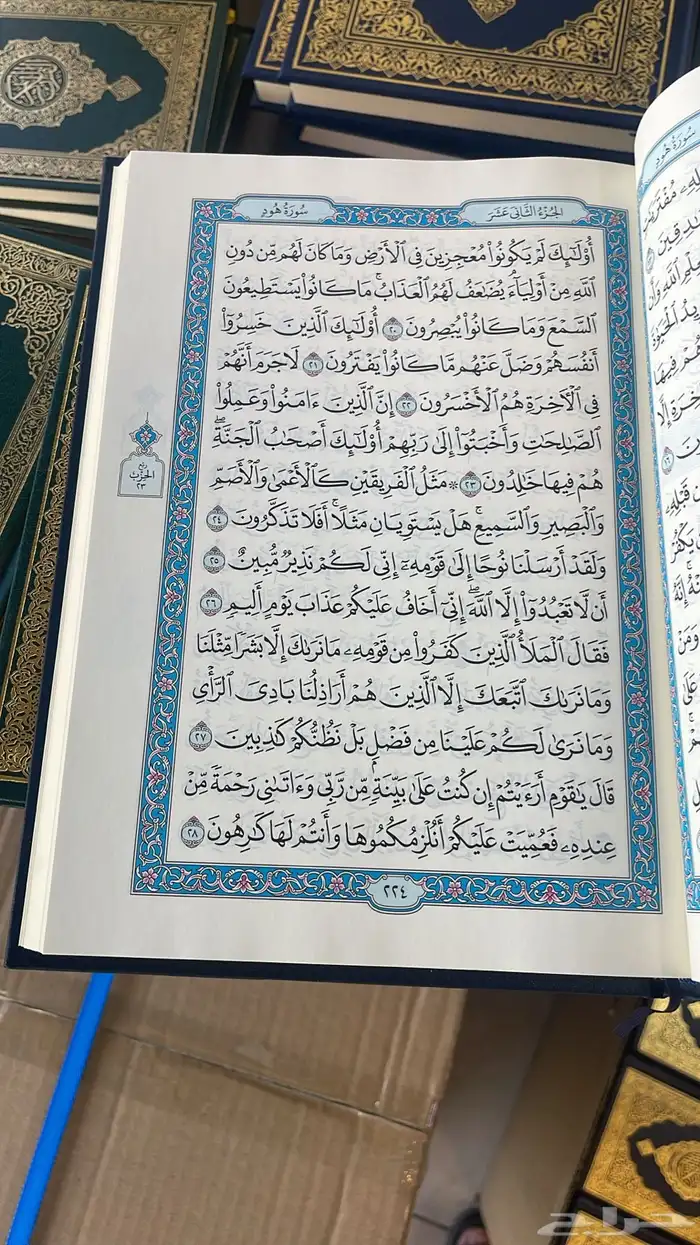 سُورَةُ هُودٍ
الجُزْءُ الثَّانِي عَشَرَ
أُوْلَٰٓئِكَ لَمْ يَكُونُواْ مُعْجِزِينَ فِي ٱلْأَرْضِ وَمَا كَانَ لَهُم مِّن دُونِ
ٱللَّهِ مِنْ أَوْلِيَآءَۘ يُضَٰعَفُ لَهُمُ ٱلْعَذَابُۚ مَا كَانُواْ يَسْتَطِيعُونَ
ٱلسَّمْعَ وَمَا كَانُواْ يُبْصِرُونَ ٢٠ أُوْلَٰٓئِكَ ٱلَّذِينَ خَسِرُوٓاْ
أَنفُسَهُمْ وَضَلَّ عَنْهُم مَّا كَانُواْ يَفْتَرُونَ ٢١ لَا جَرَمَ أَنَّهُمْ
فِي ٱلْأٓخِرَةِ هُمُ ٱلْأَخْسَرُونَ ٢٢ إِنَّ ٱلَّذِينَ ءَامَنُواْ وَعَمِلُواْ
ٱلصَّٰلِحَٰتِ وَأَخْبَتُوٓاْ إِلَىٰ رَبِّهِمْ أُوْلَٰٓئِكَ أَصْحَٰبُ ٱلْجَنَّةِۖ
هُمْ فِيهَا خَٰلِدُونَ ٢٣ ۞ مَثَلُ ٱلْفَرِيقَيْنِ كَٱلْأَعْمَىٰ وَٱلْأَصَمِّ
وَٱلْبَصِيرِ وَٱلسَّمِيعِۚ هَلْ يَسْتَوِيَانِ مَثَلًاۚ أَفَلَا تَذَكَّرُونَ ٢٤
وَلَقَدْ أَرْسَلْنَا نُوحًا إِلَىٰ قَوْمِهِۦٓ إِنِّي لَكُمْ نَذِيرٌ مُّبِينٌ ٢٥
أَن لَّا تَعْبُدُوٓاْ إِلَّا ٱللَّهَۖ إِنِّيٓ أَخَافُ عَلَيْكُمْ عَذَابَ يَوْمٍ أَلِيمٍ ٢٦
فَقَالَ ٱلْمَلَأُ ٱلَّذِينَ كَفَرُواْ مِن قَوْمِهِۦ مَا نَرَىٰكَ إِلَّا بَشَرًا مِّثْلَنَا
وَمَا نَرَىٰكَ ٱتَّبَعَكَ إِلَّا ٱلَّذِينَ هُمْ أَرَاذِلُنَا بَادِيَ ٱلرَّأْيِ
وَمَا نَرَىٰ لَكُمْ عَلَيْنَا مِن فَضْلِۭ بَلْ نَظُنُّكُمْ كَٰذِبِينَ ٢٧
قَالَ يَٰقَوْمِ أَرَءَيْتُمْ إِن كُنتُ عَلَىٰ بَيِّنَةٍ مِّن رَّبِّي وَءَاتَىٰنِي رَحْمَةً مِّنْ
عِندِهِۦ فَعُمِّيَتْ عَلَيْكُمْ أَنُلْزِمُكُمُوهَا وَأَنتُمْ لَهَا كَٰرِهُونَ ٢٨
٢٢٤
ربع
الحزب
٢٣
سُورَةُ هُودٍ
حراج